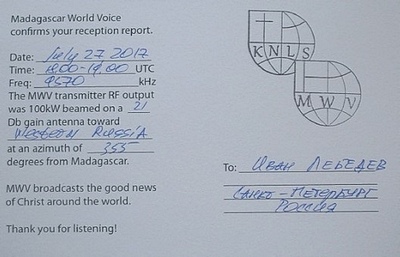 Madagascar World Voice
confirms your reception report.
Date: July 27 2017
Time: 1800-1900 UTC
Freq: 9570 kHz
The MWV transmitter RF output
was 100kW beamed on a 21
Db gain antenna toward
Western Russia
at an azimuth of 355
degrees from Madagascar.
MWV broadcasts the good news
of Christ around the world.
Thank you for listening!
KNLS
MWV
To: Иван Лебедев
Санкт-Петербург
Россия